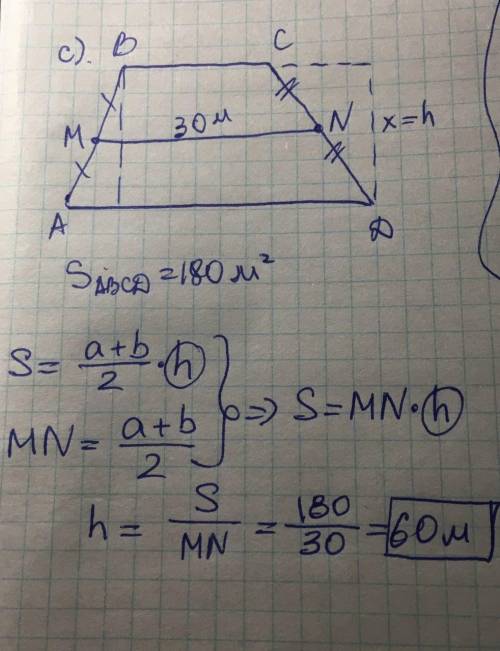 c).
B C
M 30м N x=h
A D
S_ABCD = 180 м²
S = (a+b)/2 · h
MN = (a+b)/2
⇒ S = MN · h
h = S/MN = 180/30 = 60м